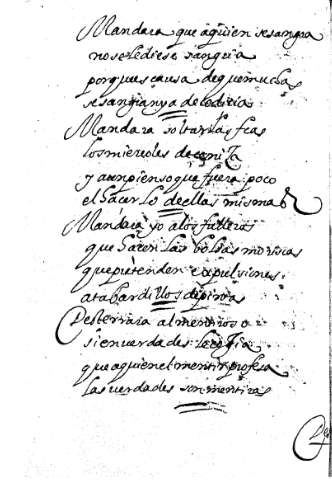 Mandara que aquien se sangra
no se le diese sangria
porque es causa de que muchas
se sangian ya de
Mandara soltar las feas
los miercoles de ceniza
y aun pienso que fuera poco
el hacerlo de ellas misma
Mandara yo a los fulleros
que hacen las bolsas moriscas
que pretenden expulsiones
atabardillos de pintas
Desterrara al mentiroso
si en verdades
que aquien el mentir profesa
las verdades son mentiras